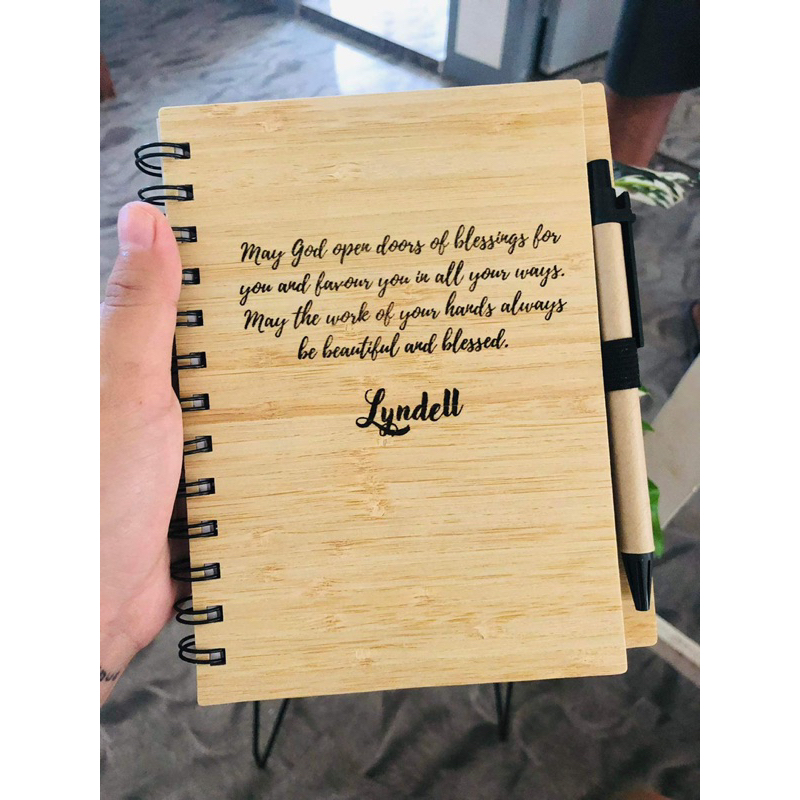 May God open doors of blessings for
you and favour you in all your ways.
May the work of your hands always
be beautiful and blessed.
Lyndell